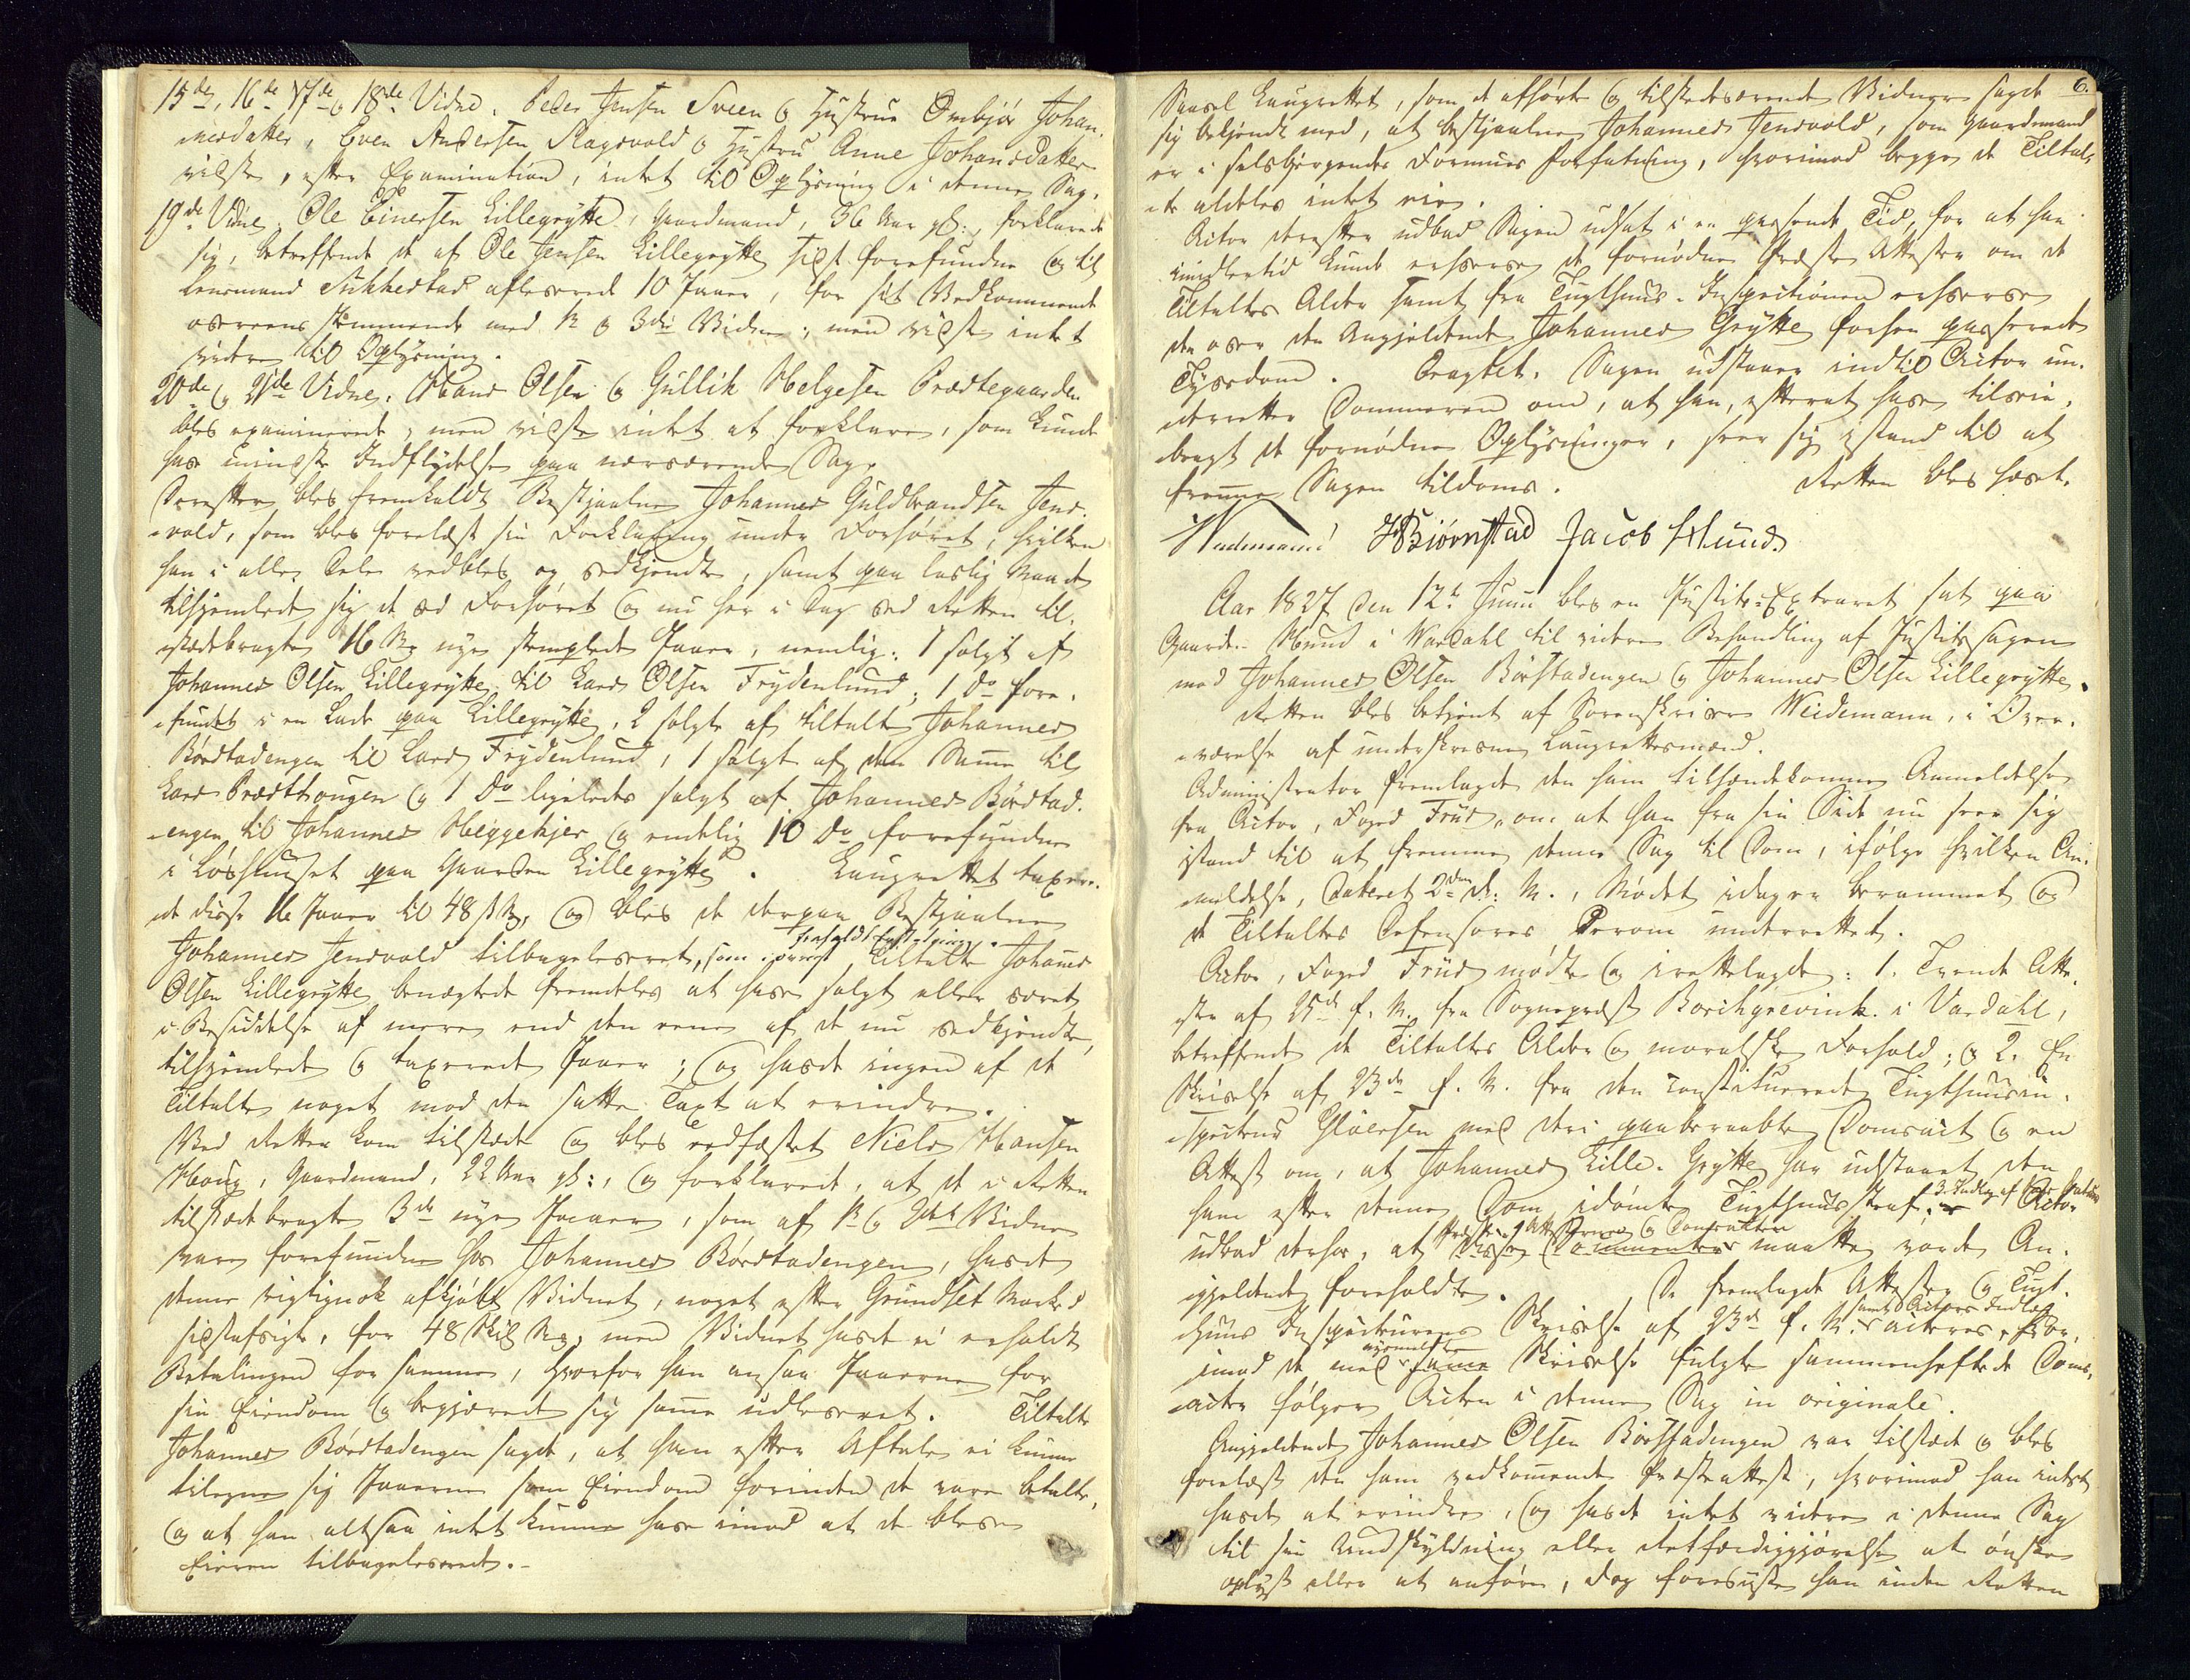 15de, 16de 17de & 18de Vidne. Peder Jensen Sveen & Hustrue Ombjør Johan-
nesdatter, Even Andersen Slagsvold & Hustru Anne Johansdatter
vidste, efter Examination, intet til Oplysning i denne Sag.
19de Vidne. Ole Einersen Lillegrytte, Gaardmand, 36 Aar gl:, forklarede
sig, betreffende de af Ole Jensen Lillegrytte sidst forefundne og til
Lensmand Sukkestad afleverede 10 Jauer, for sit Vedkommende
overeensstemmende med 1te & 3die Vidne; men vidste intet
videre til Oplysning.
20de & 21de Vidne. Hans Olsen & Gullik Helgesen Prædtegaarden
blev examinerede, men vidste intet at forklare, som kunde
have mindste Indflydelse paa nærværende Sag.
Derefter blev fremkaldt Bestjaalne Johannes Guldbrandsen Jens-
vold, som blev forelæst sin Forklaring under Forhøret, hvilken
han i alle Dele vedblev og vedkjendte, samt paa lovlig Maade
tilhjemlede sig de ved Forhøret og nu her i Dag ved Retten til-
stædebragte 16 St nye stemplede Jauer, nemlig: 1 solgt af
Johannes Olsen Lillegrytte til Lars Olsen Frydenlund; 1 Do fore-
fundet i en Lade paa Lillegrytte, 2 solgte af tiltalte Johannes
Børstadengen til Lars Frydenlund, 1 solgt af den Samme til
Lars Prædthougen & 1 Do ligeledes solgt af Johannes Børstad-
engen til Johannes Heggekjer og endelig 10 Do forefundne
i Løshuuset paa Gaarden Lillegrytte. Laugrettet taxere-
de disse 16 Jauer til 48 s St, og blev de derpaa Bestjaalne
Johannes Jensvold tilbageleveret, som Tiltalte Johannes
Olsen Lillegrytte benægtede fremdeles at have solgt eller været
i Besiddelse af mere end den eene af de nu vedkjendte,
tilhjemlede & taxerede Jauer; og havde ingen af de
Tiltalte noget mod den satte Taxt at erindre.
Ved Retten kom tilstæde og blev edfæstet Niels Hansen
Houg, Gaardmand, 22 Aar gl:, og forklarede, at de i Retten
tilstædebragte 3de nye Jauer, som af 1te & 2det Vidne
vare forefundne hos Johannes Børstadengen, havde
denne rigtignok afkjøbt Vidnet, noget efter Grundset Marked
sidstafvigte, for 48 Skil St, men Vidnet havde ei erholdt
Betalingen for samme, hvorfor han ansaa Jauerne for
sin Eiendom og begjærede sig samme udleveret. Tiltalte
Johannes Børstadengen sagde, at han efter Aftale ei kunne
tilegne sig Jauerne som Eiendom forinden de vare betalte,
og at han altsaa intet kunne have imod at de bleve
Eieren tilbageleverede.
6.
Saavel Laugrettet, som de afhørte og tilstedeværende Vidner sagde
sig bekjendt med, at bestjaalne Johannes Jensvold, som Gaardmand
er i selvbjergende Formues Forfatning, hvorimod begge de Tiltal-
te aldeles intet eie.
Actor derefter udbad Sagen udsat i en passende Tid, for at han
imidlertid kunde erhverve de fornødne Præste Attester om de
Tiltaltes Alder samt fra Tugthuus-Inspectionen erhverve
den over den Angjeldende Johannes Grytte forhen passerede
Tyvsdom. Eragtet. Sagen udstaaer indtil Actor un-
derretter Dommeren om, at han, efterat have tilveie-
bragt de fornødne Oplysninger, seer sig istand til at
fremme Sagen tildoms. Retten blev hævet.
Weidemann HBiørnstad Jacob Hund.
Aar 1827 den 12te Junii blev en Justits-Extraret sat paa
Gaarden Hund i Wardahl til videre Behandling af Justitssagen
mod Johannes Olsen Børstadengen & Johannes Olsen Lillegrytte.
Retten blev betjent af Sorenskriver Weidemann, i Over-
værelse af underskrevne Laugrettesmænd.
Administrator fremlagde den ham tilhændekomne Anmeldelse
fra Actor, Foged Früs, om at han fra sin Side nu seer sig
istand til at fremme denne Sag til Dom, ifølge hvilken An-
meldelse, dateret 2den d: M., Mødet idag er berammet og
de Tiltaltes Defensores derom underrettet.
Actor, Foged Früs mødte og irettelagde: 1. Tvende Atte-
ster af 25de f. M. fra Sognepræst Borchgrevink i Vardahl,
betreffende de Tiltaltes Alder og moralske Forhold; & 2. En
Skrivelse af 23de f. M. fra den constituerede Tugthuusin-
specteur Gløersen med deri paaberaabte Domsact og en
Attest om, at Johannes Lille-Grytte har udstaaet den
ham efter denne Dom idømte Tugthuusstraf; 3. Indlæg af Actor
udbad derhos, at disse Documenter maatte vorde An-
gjeldende foreholdte. De fremlagde Attester & Tugt-
huus Inspecteurens Skrivelse af 23de f. M. samt Actors Indlæg acteres, hvor-
imod de med samme Skrivelse fulgte sammenheftede Doms-
acter følger Acten i denne Sag in originale.
Angjeldende Johannes Olsen Børstadengen var tilstæde & blev
forelæst den ham vedkommende Præsteattest, hvorimod han intet
havde at erindre, og havde intet videre i denne Sag
til sin Undskyldning eller Retfærdiggjørelse at ønske
oplyst eller at anføre, dog foreviste han inden Retten